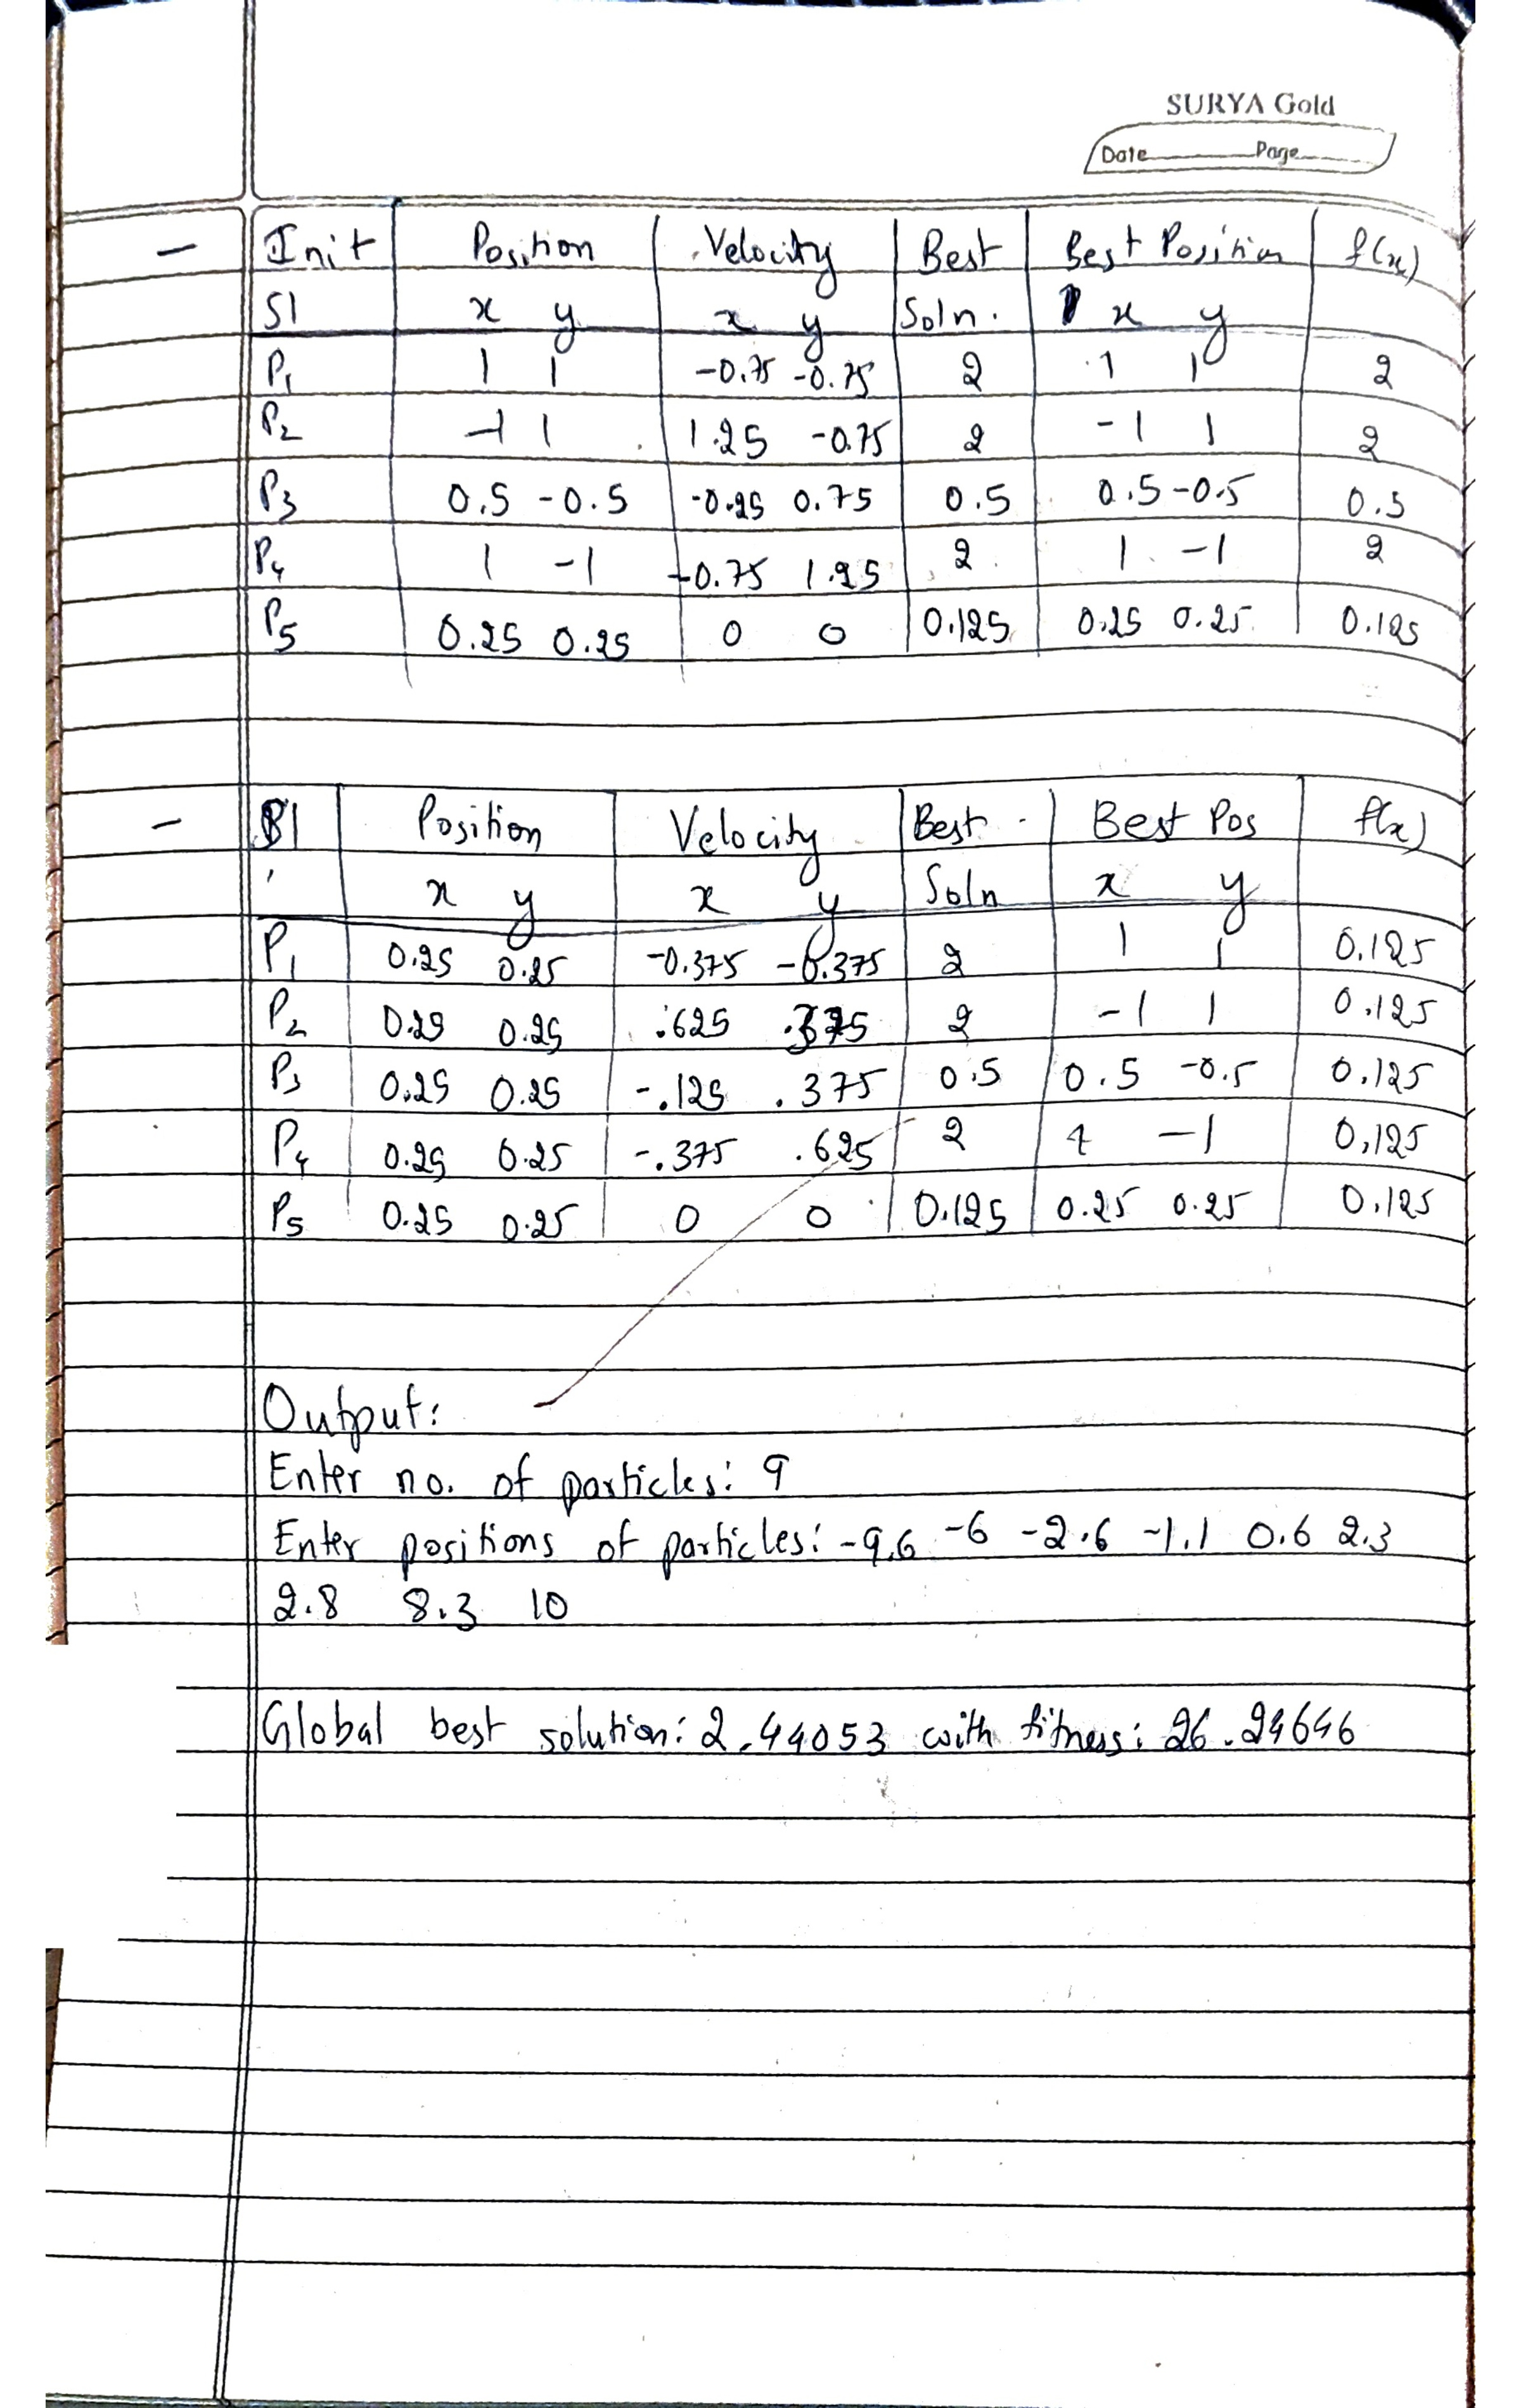 SURYA Gold
Date Page
- Init Position Velocity Best Best Position f(x)
Sl x y x y Soln. x y
P1 1 1 -0.75 -0.75 2 1 1 2
P2 -1 1 1.25 -0.75 2 -1 1 2
P3 0.5 -0.5 -0.25 0.75 0.5 0.5 -0.5 0.5
P4 1 -1 -0.75 1.25 2 1 -1 2
P5 0.25 0.25 0 0 0.125 0.25 0.25 0.125
- Sl Position Velocity Best Best Pos f(x)
x y x y Soln x y
P1 0.25 0.25 -0.375 -0.375 2 1 1 0.125
P2 0.25 0.25 .625 .375 2 -1 1 0.125
P3 0.25 0.25 -.125 .375 0.5 0.5 -0.5 0.125
P4 0.25 0.25 -.375 .625 2 1 -1 0.125
P5 0.25 0.25 0 0 0.125 0.25 0.25 0.125
Output:
Enter no. of particles: 9
Enter positions of particles: -9.6 -6 -2.6 -1.1 0.6 2.3
2.8 8.3 10
Global best solution: 2.44053 with fitness: 26.24646